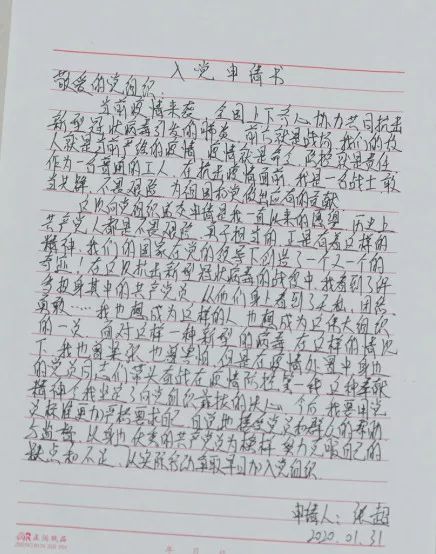 入党申请书
敬爱的党组织:
当前疫情来袭 全国上下齐心协力共同抗击
新型冠状病毒引发的肺炎 前方就是战场 我们的敌
人就是 的疫情 疫情就是命令 防控就是责任
作为一名普通的工人 在抗击疫情面前 我是一名战士 敢
当先锋 不畏艰险 为祖国和党做出应有的贡献
这次向党组织递交申请是我一直以来的愿望 历史上
共产党人都是不畏艰险 勇于担当的 正是有着这样的
精神 我们的国家在党的领导下创造了一个又一个的
奇迹!在这次抗击新型冠状病毒的战役中 我看到了许
多挺身其中的共产党员 从他们身上看到了无私、团结、
勇敢……我也想成为这样的人 也想成为这伟大组织
的一员 面对这样一种新型的病毒 在这样的情况
下 我也曾 也曾害怕 但是在疫情 中身边
的党员同志们带头奋战在疫情防控第一线 这种奉献
精神令我坚定了向党组织靠拢的决心 今后 我要用党
员标准更加严格要求自己 自觉地接受党员和群众的帮助
与监督 以身边优秀的共产党员为榜样 努力克服自己的
缺点和不足 以实际行动争取早日加入党组织
申请人:张超
2020.01.31